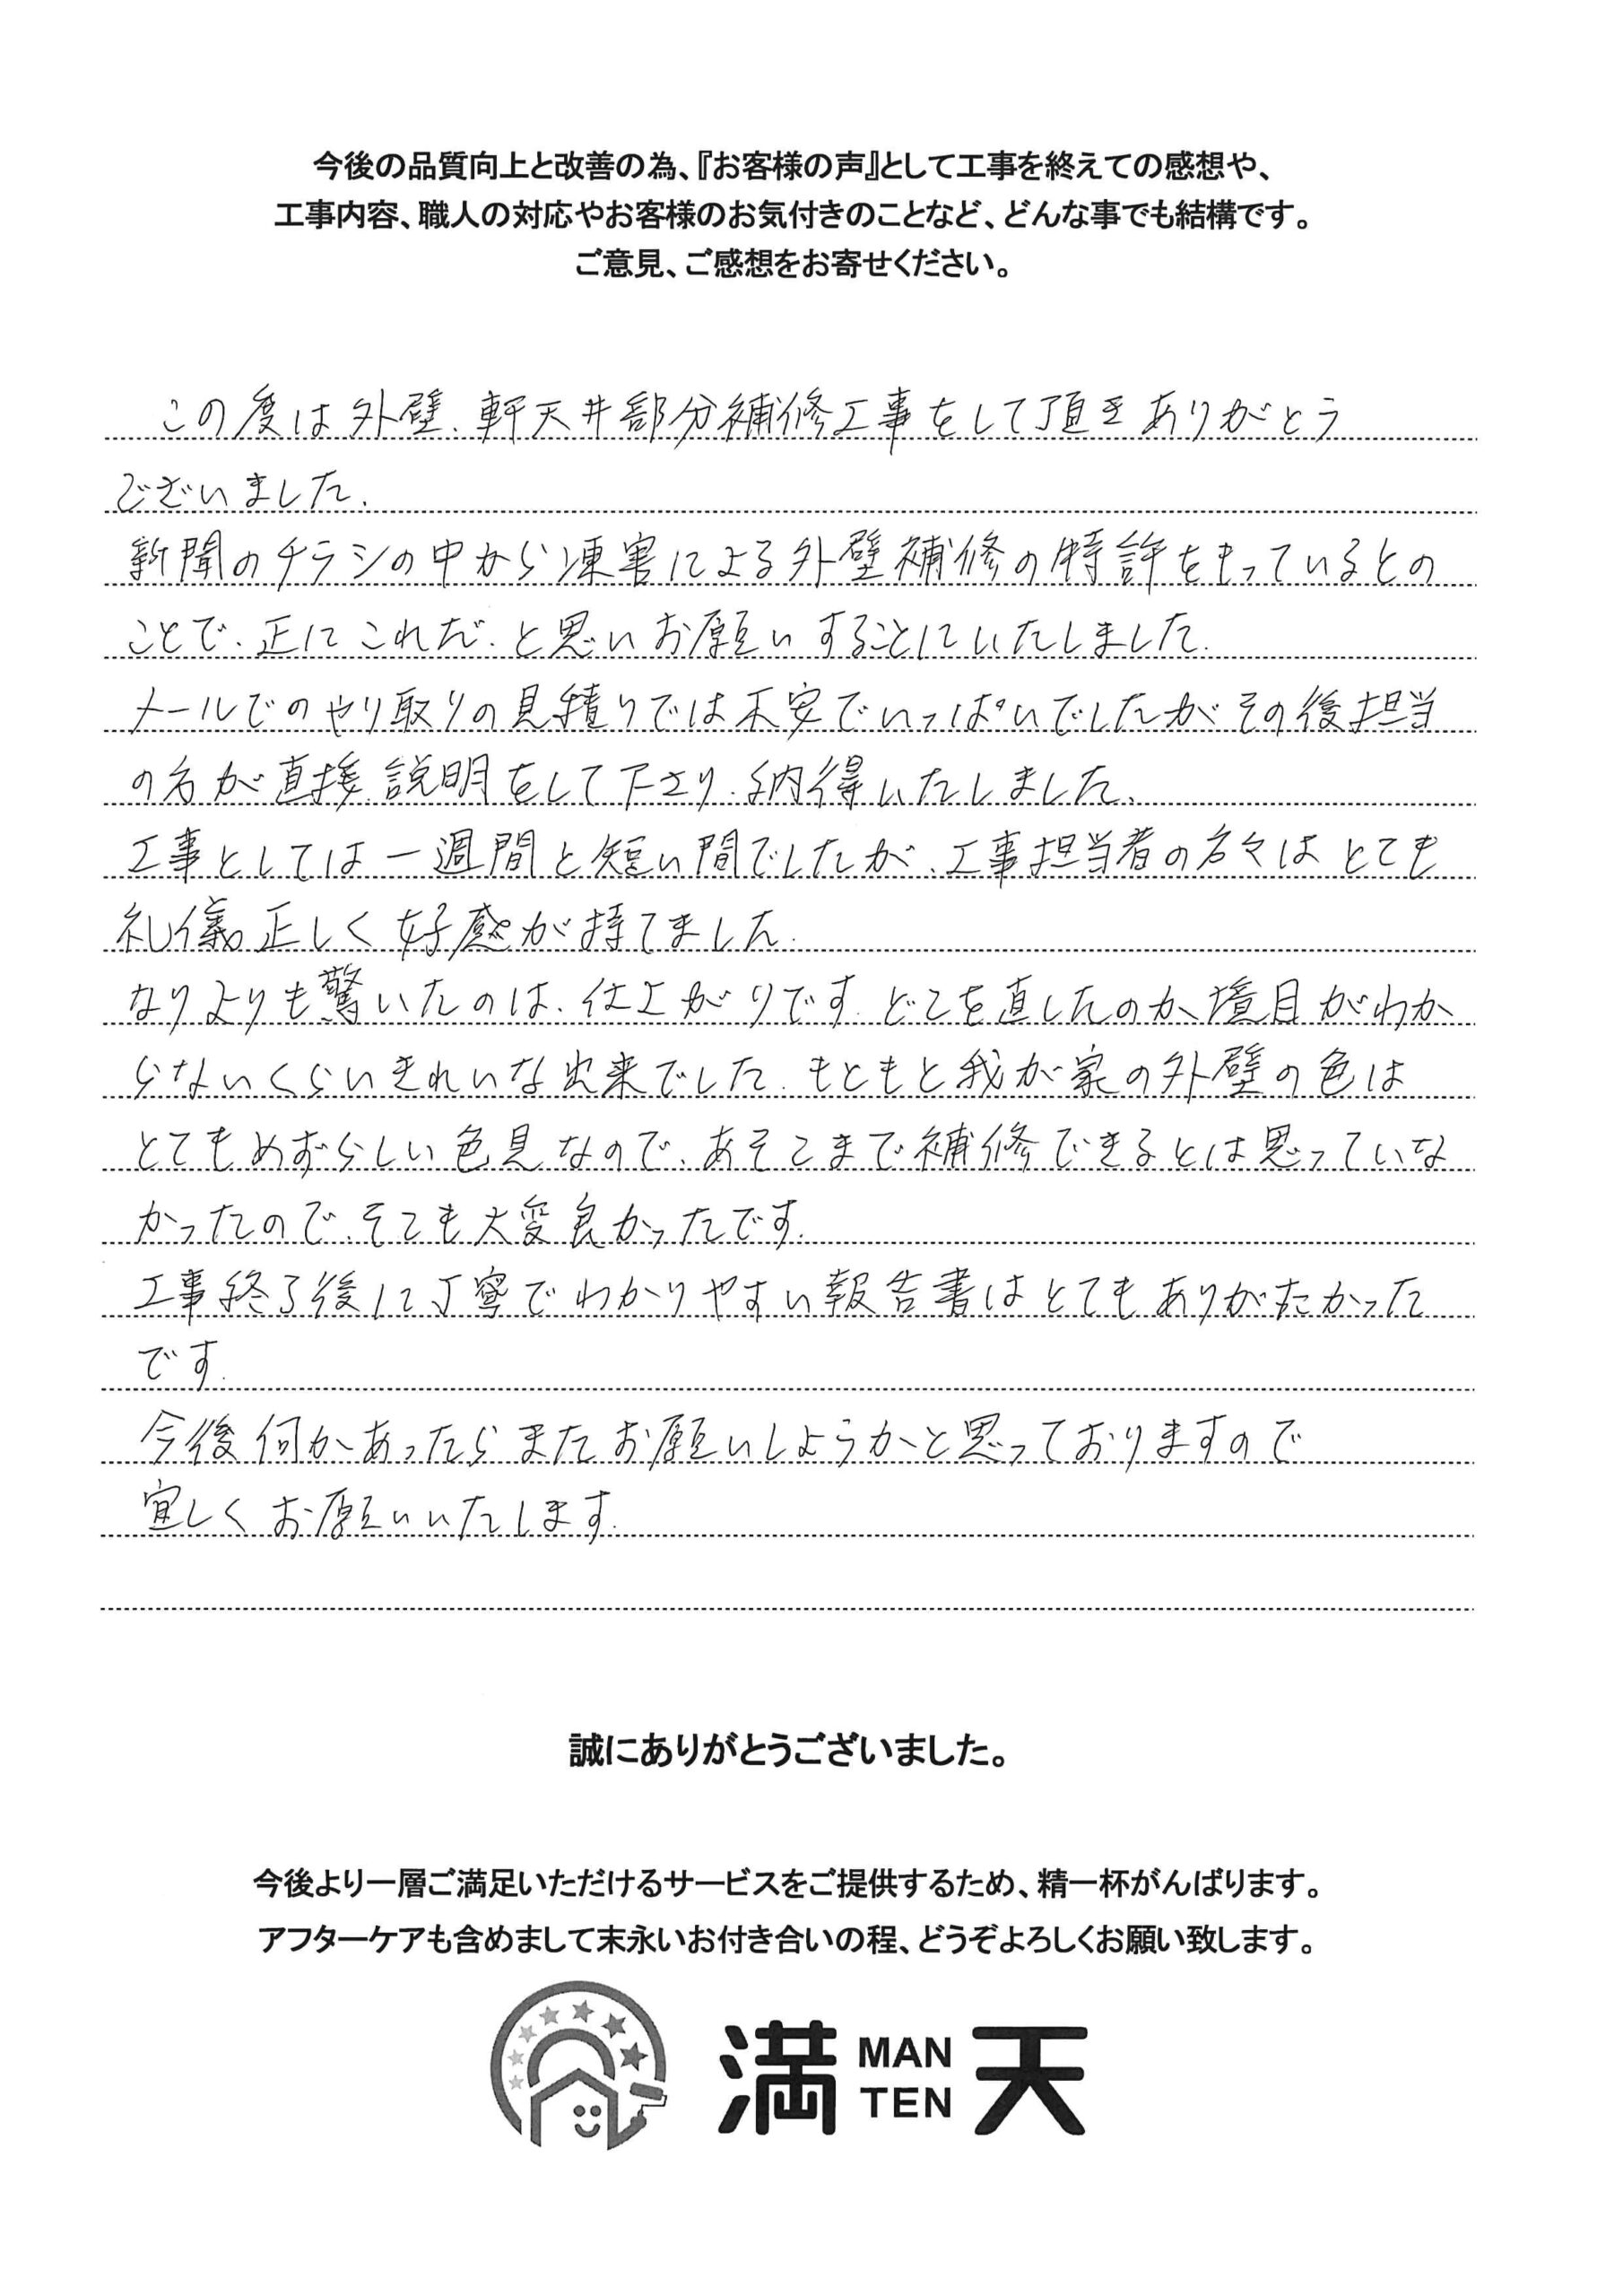 今後の品質向上と改善の為、『お客様の声』として工事を終えての感想や、
工事内容、職人の対応やお客様のお気付きのことなど、どんな事でも結構です。
ご意見、ご感想をお寄せください。
この度は外壁、軒天井部分補修工事をして頂きありがとう
ございました。
新聞のチラシの中から凍害による外壁補修の特許をもっているとの
ことで、正にこれだ、と思いお願いすることにいたしました。
メールでのやり取りの見積りでは不安でいっぱいでしたがその後担当
の方が直接説明をして下さり、納得いたしました。
工事としては一週間と短い間でしたが、工事担当者の方々はとても
礼儀正しく好感が持てました。
なりよりも驚いたのは、仕上がりです。どこを直したのか境目がわか
らないくらいきれいな出来でした。もともと我が家の外壁の色は
とてもめずらしい色見なので、あそこまで補修できるとは思っていな
かったので、そこも大変良かったです。
工事終了後に丁寧でわかりやすい報告書はとてもありがたかった
です。
今後何かあったらまたお願いしようかと思っておりますので
宜しくお願いいたします。
誠にありがとうございました。
今後より一層ご満足いただけるサービスをご提供するため、精一杯がんばります。
アフターケアも含めまして末永いお付き合いの程、どうぞよろしくお願い致します。
満 MAN TEN 天